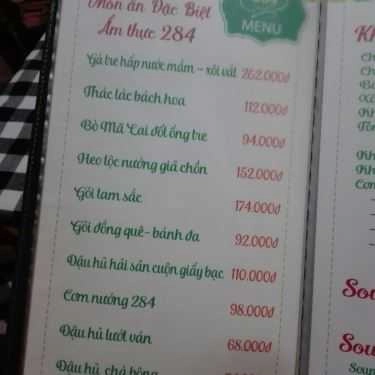 Món ăn Đặc Biệt
Ẩm thực 284
MENU
Gà tre hấp nước mắm - xôi vắt 262.000đ
Thác lác bách hoa 112.000đ
Bò Mã Lai đốt ống tre 94.000đ
Heo lộc nướng giả chồn 152.000đ
Gỏi tam sắc 174.000đ
Gỏi đồng quê - bánh đa 92.000đ
Đậu hủ hải sản cuộn giấy bạc 110.000đ
Cơm nướng 284 98.000đ
Đậu hủ lướt ván 68.000đ
Đậu hủ chà bông
Kh
Ch
Ch
Kh
Kh
Kh
Com
Sou
Sou
Soup